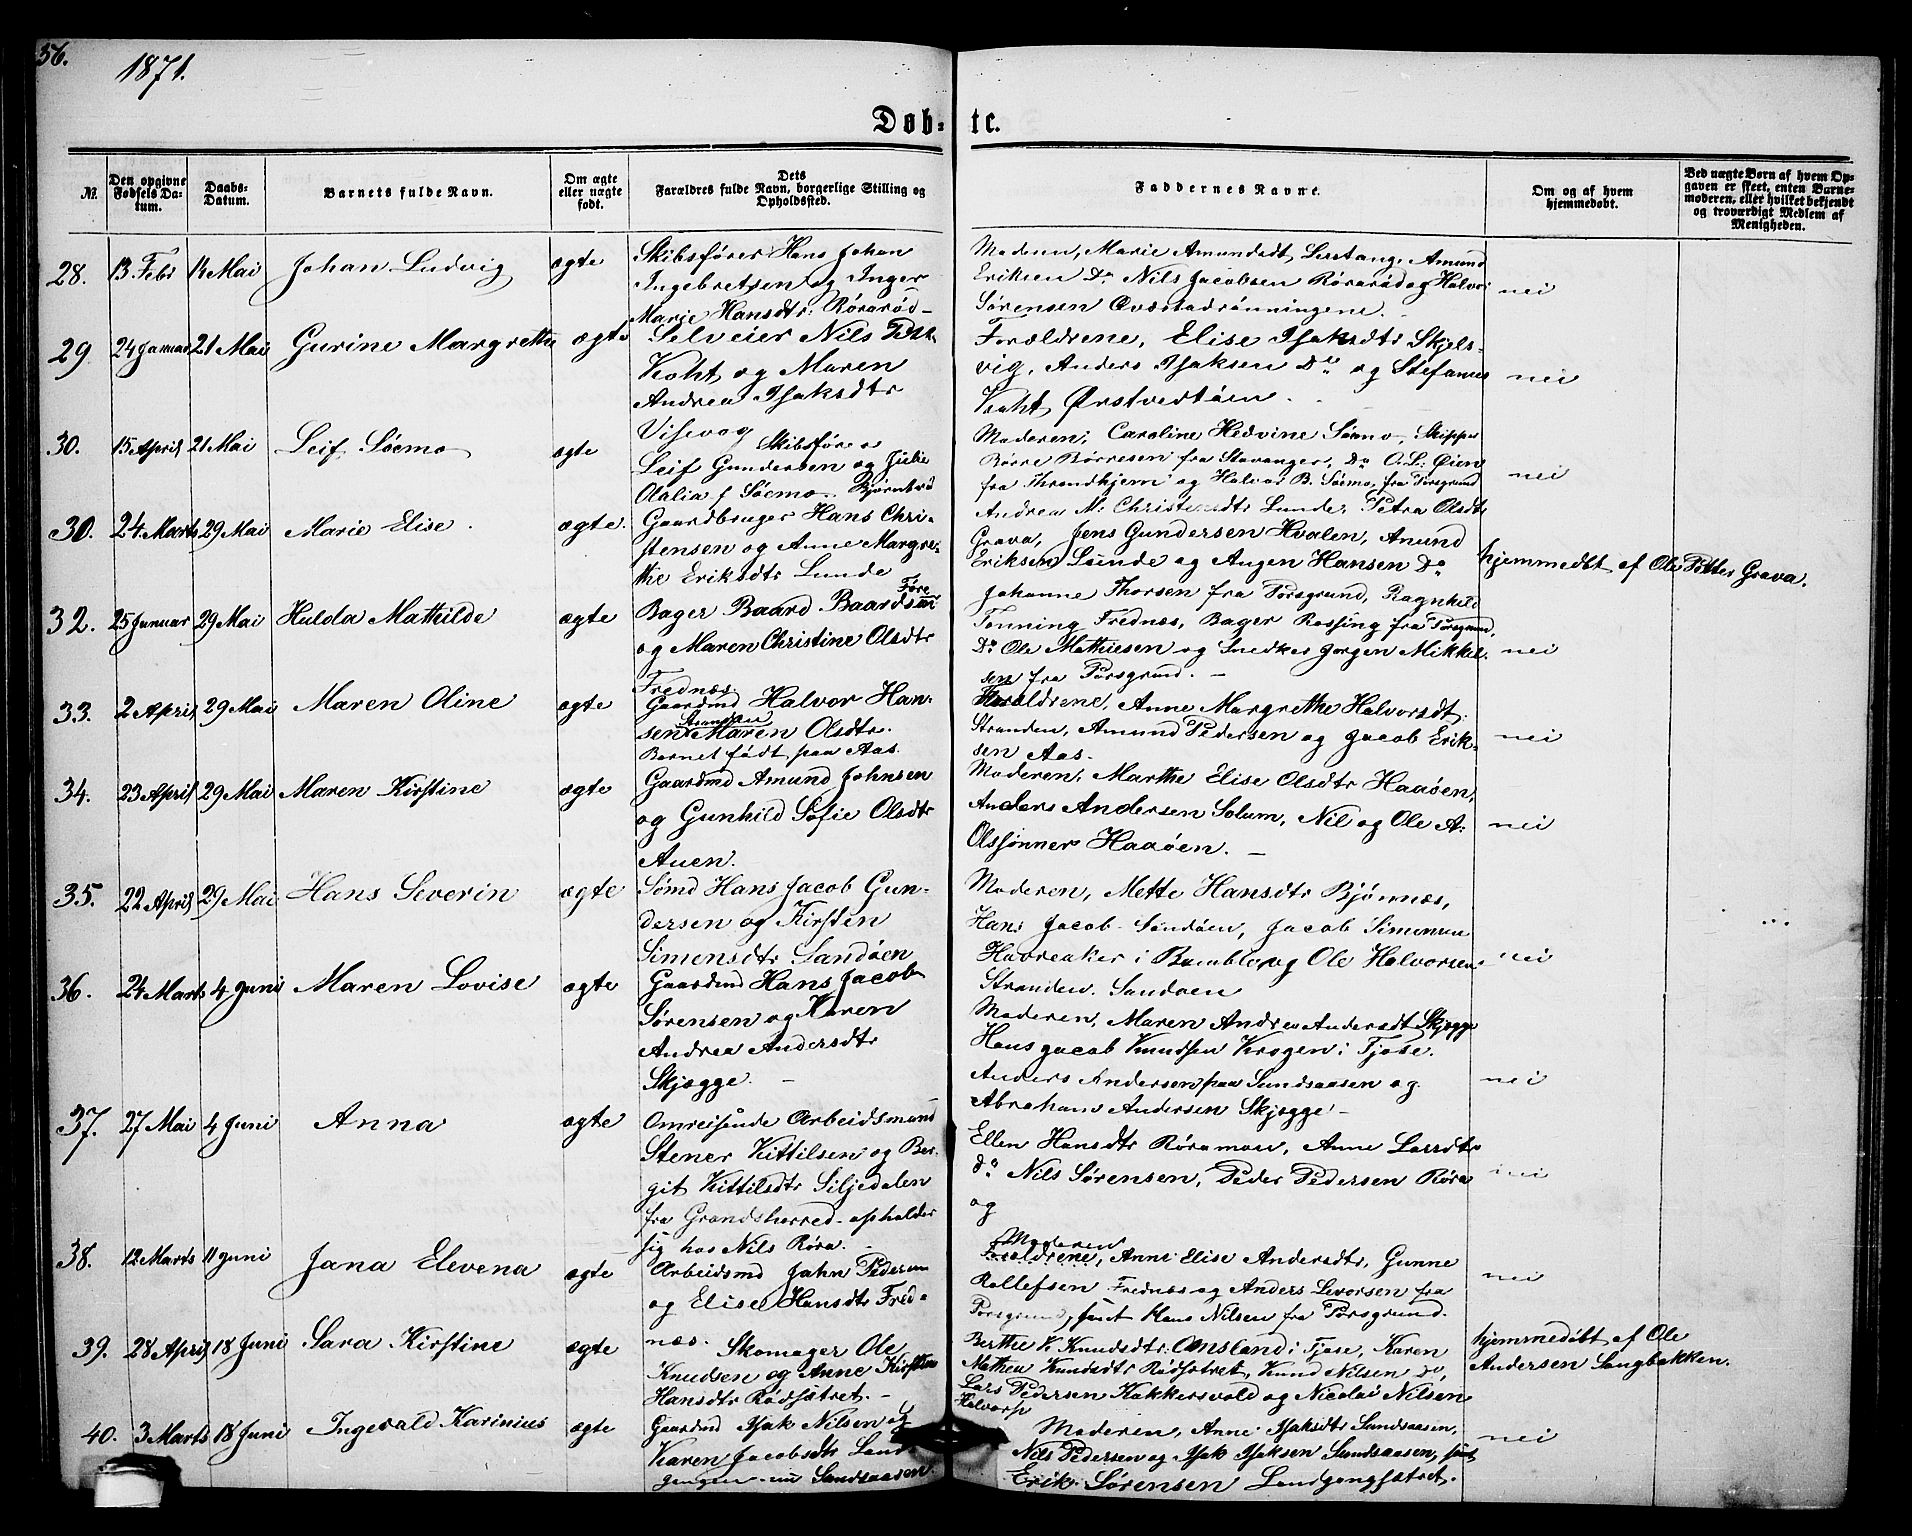 56.
1871.
Døb-te.
№.
Den opgivne Fødsels Datum.
Daabs-Datum.
Barnets fulde Navn.
Om ægte eller uægte født.
Dets Forældres fulde Navn, borgerlige Stilling og Opholdsted.
Faddernes Navne.
Om og af hvem hjemmedøbt.
Ved uægte Børn af hvem Opgaven er skeet, enten Barnemoderen, eller hvilket bekjendt og troværdigt Medlem af Menigheden.
28. 13 Febr 14 Mai Johan Ludvig ægte
Skibsfører Hans Johan
Ingebretsen og Inger
Marie Hansdtr: Rørarød
Marie Amundsdt Amund
Eriksen Do Nils Jacobsen Rørarød og Halvor
Sørensen
nei
29 24 Januar 21 Mai Gurine Margrethe ægte
Selveier Nils
Koht og Maren
Andrea Isaksdtr
Vissevag
Forældrene, Elise Isaksdtr Skjels-
vig, Anders Isaksen Do og Stefanus
Koht Ørstvedtøen.
nei
30. 15 April 21 Mai Leif Söemo ægte
Skibsfører
Leif Gundersen og Julie
Olalia f Söemo.
Moderen, Caroline Hedvine Söemo, Skipper
Börre Börresen fra Stavanger, Do O. L: Øien
fra Throndhjem og Halvor B. Söemo, fra Porsgrund
nei
30. 24 Marts 29 Mai Marie Elise. ægte.
Gaardbruger Hans Chri-
stensen og Anne Margre-
the Eriksdtr Lunde
Andrea M: Christensdtr Lunde, Petra Olsdtr
Grava, Jens Gundersen Hvalen, Anund
Eriksen Lunde og Augen Hansen Do
hjemmedöbt af Ole Petter Grava.
32. 25 Januar 29 Mai Hulda Mathilde ægte
Bager Baard Baardsen
og Maren Christine Olsdtr
Frednæs
Johanne Thorsen fra Porsgrund, Ragnhild
Tonning Frednæs, Bager Rossing fra Porsgrund,
Do Ole Mathiesen og Snedker Jørgen Mikkel-
sen fra Porsgrund. -
nei
33. 2 April 29 Mai Maren Oline ægte
Gaardmd Halvor Han-
sen Stranden Maren Olsdtr.
Barnet födt paa Aas.
Forældrene, Anne Margrethe Halvorsdt.
Stranden, Amund Pedersen og Jacob Erik-
sen Aas.
nei
34. 23 April 29 Mai Maren Kirstine ægte
Gaardmd Amund Johnsen
og Gunhild Sofie Olsdtr
Auen.
Moderen, Marthe Elise Olsdtr Haaøen,
Anders Andersen Solum, Nil og Ole A:
Olssønner Haaøen. -
nei
35. 22 April 29 Mai Hans Severin ægte
Sømd Hans Jacob Gun-
dersen og Kirsten
Simensdtr Sandøen
Moderen, Mette Hansdtr Bjønnæs,
Hans Jacob Sandøen, Jacob Simonsen
Havreaker i Bamble og Ole Halvorsen
Stranden. Sandøen
nei
36. 24 Marts 4 Juni Maren Lovise ægte
Gaardmd Hans Jacob
Sørensen og Karen
Andrea Andersdtr
Skjøgge. -
Moderen, Maren Andrea Andersdt Skjøgge
Hans Jacob Knudsen Krogen i Tjose.
Anders Andersen paa Sundsaasen og
Abraham Andersen Skjøgge -
nei
37. 27 Mai 4 Juni Anna ægte
Omreisende Arbeidsmand
Stener Kittilsen og Ber-
git Kittilsdtr Siljedalen
fra Grandsherred - opholder
sig hos Nils Røra.
Ellen Hansdtr Röramoen, Anne Larsdtr
do Nils Sørensen, Peder Pedersen Røra
og
nei
38. 12 Marts 11 Juni Jana Elevena ægte
Arbeidsmd Jahn Pedersen
og Elise Hansdtr Fred-
næs.
Moderen
Forældrene, Anne Elise Andersdtr, Gunne
Rollefsen Frednæs og Anders Levorsen fra
Porsgrund, samt Hans Nilsen fra Porsgrund.
nei
39. 28 April 18 Juni Sara Kirstine ægte
Skomager Ole
Knudsen og Anne Kirstine
Hansdtr Rødsætret. -
Berthe K Knudsdtr: Omsland i Tjose, Karen
Mathea Knudsdtr Rødsætret, Knud Nilsen do,
Lars Pedersen Kokkersvold og Nicolai Nilsen
Halvorsr
hjemmedöbt af Ole
Andersen Langbakken.
40. 3 Marts 18 Juni Ingevald Karinius ægte
Gaardmd Isak Nilsen og
Karen Jacobsdtr
Sundsaasen.
Moderen, Anne Isaksdtr Sundsaasen,
Nils Pedersen og Isak Isaksen Sundsaasen, samt
Erik Sørensen Landgangsætret.
nei